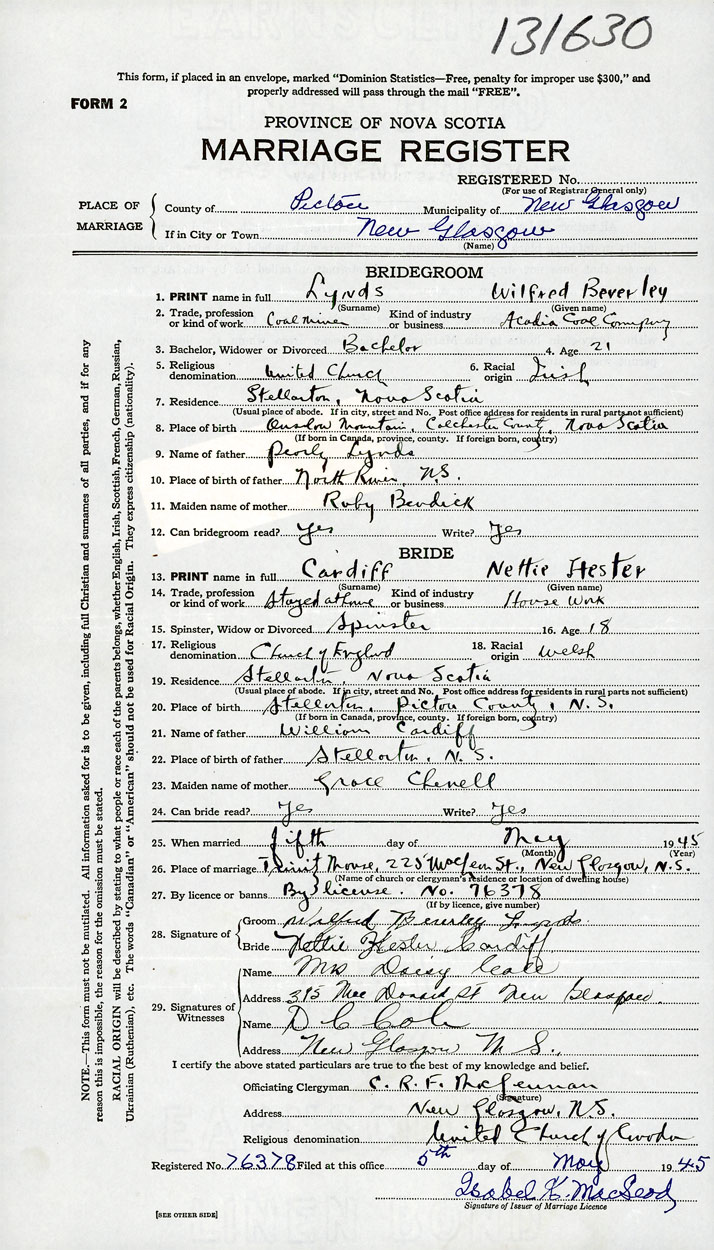 131630
This form, if placed in an envelope, marked "Dominion Statistics—Free, penalty for improper use $300," and
properly addressed will pass through the mail "FREE".
FORM 2
PROVINCE OF NOVA SCOTIA
MARRIAGE REGISTER
REGISTERED No.
(For use of Registrar General only)
PLACE OF MARRIAGE
County of Pictou Municipality of New Glasgow
If in City or Town New Glasgow
(Name)
BRIDEGROOM
1. PRINT name in full Lynds Wilfred Beverley
(Surname) (Given name)
2. Trade, profession or kind of work Coal miner Kind of industry or business Acadia Coal Company
3. Bachelor, Widower or Divorced Bachelor 4. Age 21
5. Religious denomination United Church 6. Racial origin Irish
7. Residence Stellarton, Nova Scotia
(Usual place of abode. If in city, street and No. Post office address for residents in rural parts not sufficient)
8. Place of birth Onslow Mountain, Colchester County, Nova Scotia
(If born in Canada, province, county. If foreign born, country)
9. Name of father Lynds
10. Place of birth of father North River, N.S.
11. Maiden name of mother Ruby
12. Can bridegroom read? Yes Write? Yes
BRIDE
13. PRINT name in full Cardiff Nettie Hester
(Surname) (Given name)
14. Trade, profession or kind of work Stayed at home Kind of industry or business House Work
15. Spinster, Widow or Divorced Spinster 16. Age 18
17. Religious denomination Church of England 18. Racial origin Welsh
19. Residence Stellarton, Nova Scotia
(Usual place of abode. If in city, street and No. Post office address for residents in rural parts not sufficient)
20. Place of birth Stellarton, Pictou County, N.S.
(If born in Canada, province, county. If foreign born, country)
21. Name of father William Cardiff
22. Place of birth of father Stellarton, N.S.
23. Maiden name of mother Grace
24. Can bride read? Yes Write? Yes
25. When married fifth day of May 1945
(Month) (Year)
26. Place of marriage House, 225 St., New Glasgow, N.S.
(Name of church or clergyman's residence or location of dwelling house)
27. By licence or banns By license. No. 76378
(If by licence, give number)
28. Signature of
Groom Wilfred Beverley Lynds
Bride Nettie Hester Cardiff
29. Signatures of Witnesses
Name Mrs Daisy
Address 315 Mac Donald St New Glasgow
Name D C Cole
Address New Glasgow N.S.
I certify the above stated particulars are true to the best of my knowledge and belief.
Officiating Clergyman C. R. F. MacLennan
(Signature)
Address New Glasgow, N.S.
Religious denomination United Church of Canada
Registered No. 76378 Filed at this office 5th day of May 1945
Isobel K. MacLeod
Signature of Issuer of Marriage Licence
[SEE OTHER SIDE]
NOTE.—This form must not be mutilated. All information asked for is to be given, including full Christian and surnames of all parties, and if for any
reason this is impossible, the reason for the omission must be stated.
RACIAL ORIGIN will be described by stating to what people or race each of the parents belongs, whether English, Irish, Scottish, French, German, Russian,
Ukrainian (Ruthenian), etc. The words "Canadian" or "American" should not be used for Racial Origin. They express citizenship (nationality).